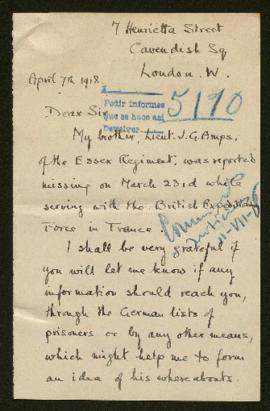 7 Henrietta Street
Cavendish Sq.
London. W.
April 7th 1918.
Pedir informes
que se hace así
Devolver
5190
Dear Sir
My brother, Lieut. J.G. Amps.
of the Essex Regiment, was reported
missing on March 23rd while
serving with the British Expeditionary
Force in France.
I shall be very grateful if
you will let me know if any
information should reach you,
through the German lists of
prisoners or by any other means,
which might help me to form
an idea of his whereabouts.